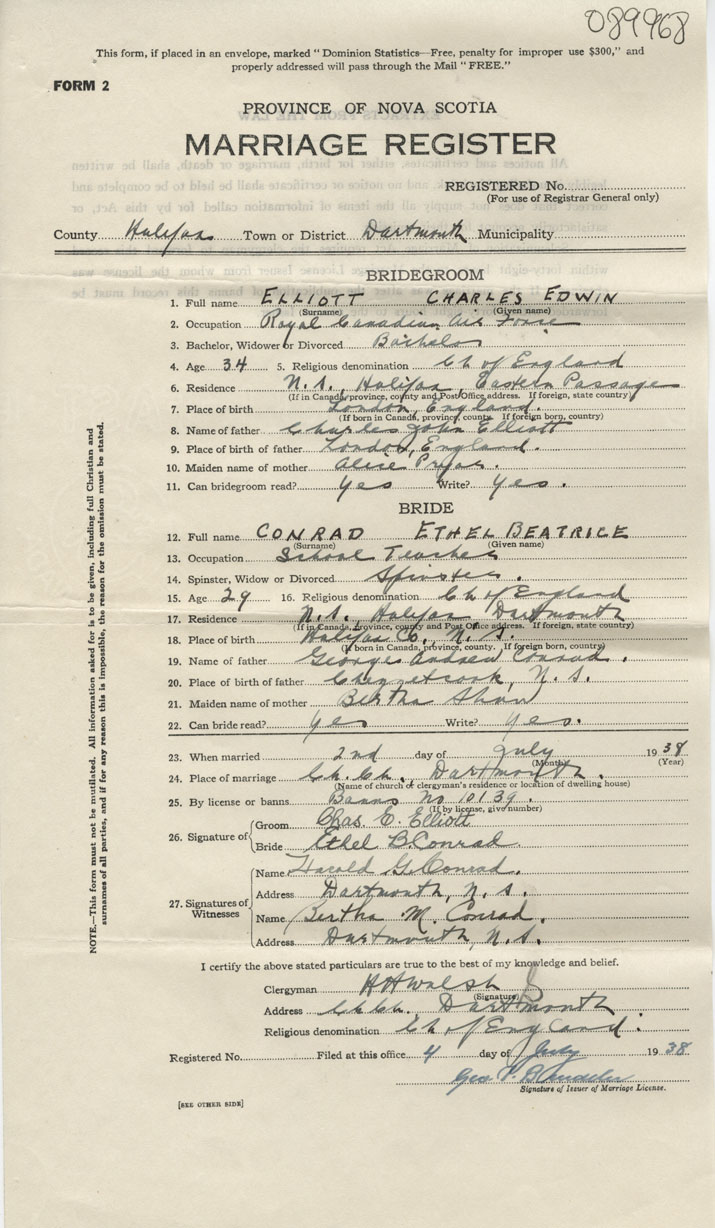 089968
This form, if placed in an envelope, marked "Dominion Statistics—Free, penalty for improper use $300," and
properly addressed will pass through the Mail "FREE."
FORM 2
PROVINCE OF NOVA SCOTIA
MARRIAGE REGISTER
REGISTERED No.
(For use of Registrar General only)
County Halifax Town or District Dartmouth Municipality
BRIDEGROOM
1. Full name ELLIOTT CHARLES EDWIN
(Surname) (Given name)
2. Occupation Royal Canadian Air Force
3. Bachelor, Widower or Divorced Bachelor
4. Age 34 5. Religious denomination Ch of England
6. Residence N.S., Halifax, Eastern Passage
(If in Canada, province, county and Post Office address. If foreign, state country)
7. Place of birth London, England.
(If born in Canada, province, county. If foreign born, country)
8. Name of father Charles John Elliott
9. Place of birth of father London, England.
10. Maiden name of mother Alice
11. Can bridegroom read? Yes Write? Yes.
BRIDE
12. Full name CONRAD ETHEL BEATRICE
(Surname) (Given name)
13. Occupation School Teacher
14. Spinster, Widow or Divorced Spinster.
15. Age 29 16. Religious denomination Ch of England
17. Residence N.S. Halifax Dartmouth
(If in Canada, province, county and Post Office address. If foreign, state country)
18. Place of birth Halifax Co., N.S.
(If born in Canada, province, county. If foreign born, country)
19. Name of father George Andrew Conrad.
20. Place of birth of father Chezzetcook, N.S.
21. Maiden name of mother Bertha Shaw
22. Can bride read? Yes Write? Yes.
23. When married 2nd day of July 1938
(Month) (Year)
24. Place of marriage Ch. Ch., Dartmouth.
(Name of church or clergyman's residence or location of dwelling house)
25. By license or banns Banns No 10139.
(If by license, give number)
26. Signature of Groom Chas. E. Elliott
Bride Ethel B. Conrad
27. Signatures of Witnesses
Name Harold G. Conrad.
Address Dartmouth, N.S.
Name Bertha M. Conrad.
Address Dartmouth, N.S.
I certify the above stated particulars are true to the best of my knowledge and belief.
Clergyman HH Walsh
(Signature)
Address Ch. Ch. Dartmouth.
Religious denomination Ch of England.
Registered No. Filed at this office 4 day of July 1938
Geo
Signature of Issuer of Marriage License.
[SEE OTHER SIDE]
NOTE.—This form must not be mutilated. All information asked for is to be given, including full Christian and
surnames of all parties, and if for any reason this is impossible, the reason for the omission must be stated.